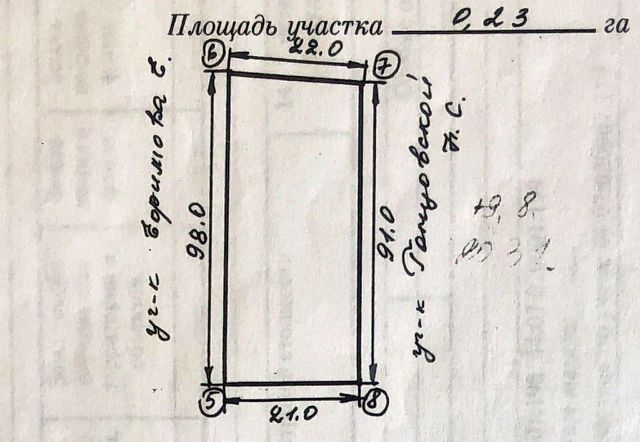 Площадь участка 0,23 га
6
22.0
7
уч-к Боримова Е.
98.0
91.0
уч-к Гонцовской
Н. С.
5
21.0
8